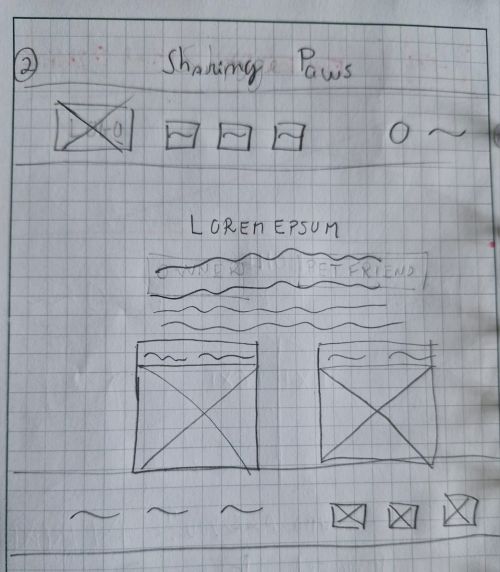 2 Sharing Paws
LOGO
LOREM EPSUM
OWNER PET FRIEND